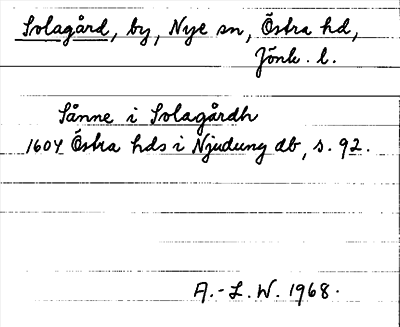 Solagård, by, Nye sn, Östra hd,
Jönk. l.
Sånne i Solagårdh
1604 Östra hds i Njudung db, s. 92.
A.-L. W. 1968.